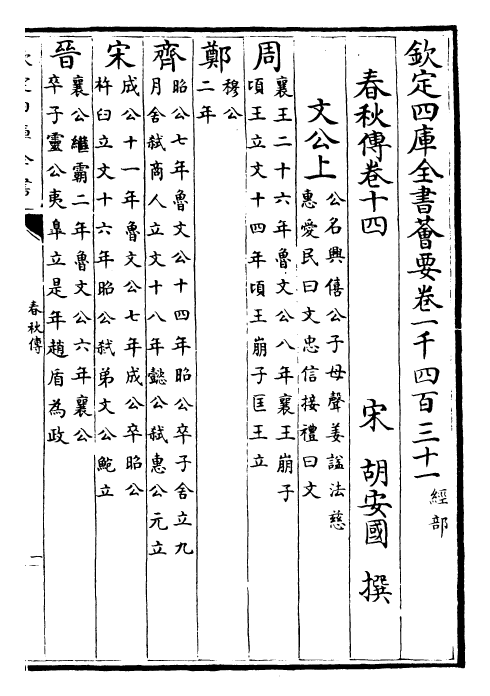 欽定四庫全書薈要卷一千四百三十一 經部
春秋傳卷十四
宋 胡安國 撰
文公上
公名興僖公子母聲姜諡法慈
惠愛民曰文忠信接禮曰文
周
襄王二十六年魯文公八年襄王崩子
頃王立文十四年頃王崩子匡王立
鄭
穆公
二年
齊
昭公七年魯文公十四年昭公卒子舍立九
月舍弑商人立文十八年懿公弑惠公元立
宋
成公十一年魯文公七年成公卒昭公
杵臼立文十六年昭公弑弟文公鮑立
晉
襄公繼霸二年魯文公六年襄公
卒子靈公夷臯立是年趙盾為政
春秋傳
一